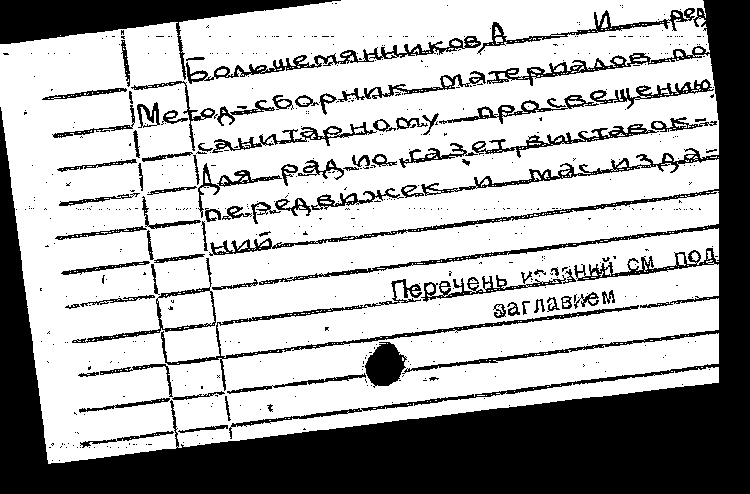 Большемянников, А И , ред
Метод=сборник материалов по
санитарному просвещению
Для радио, газет, выставок=
передвижек и мас. изда=
ний
Перечень изданий см под
заглавием